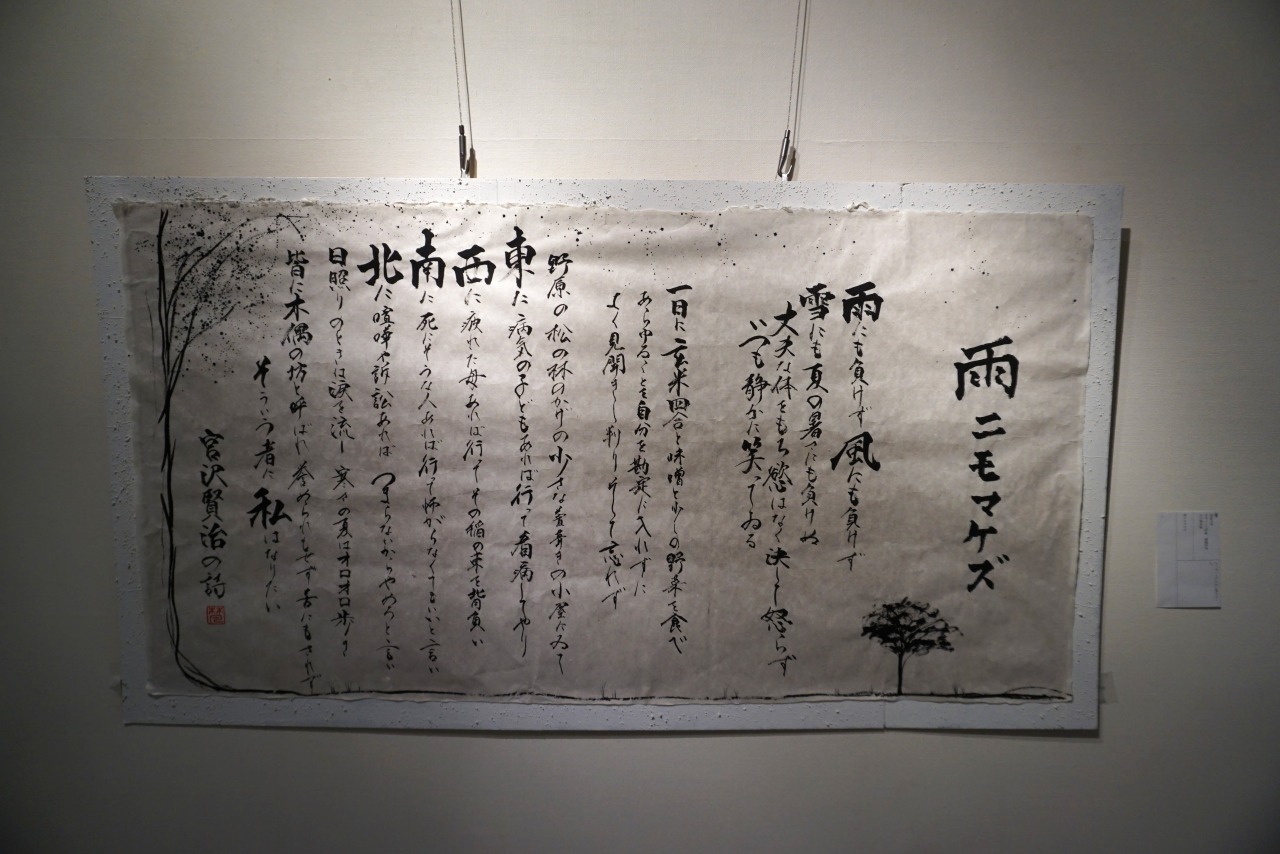 雨ニモマケズ
雨にも負けず風にも負けず
雪にも夏の暑さにも負けぬ
丈夫な体をもち慾はなく決して怒らず
いつも静かに笑ってゐる
一日に玄米四合と味噌と少しの野菜を食べ
あらゆることを自分を勘定に入れずに
よく見聞きし判りそして忘れず
野原の松の林のかげの小さな萱葺きの小屋にゐて
東に病気の子どもあれば行って看病してやり
西に疲れた母あれば行ってその稲の束を背負い
南に死にそうな人あれば行って怖がらなくてもいいと言い
北に喧嘩や訴訟あればつまらないからやめろと言い
日照りのときは涙を流し寒さの夏はオロオロ歩き
皆に木偶の坊と呼ばれ誉められもせず苦にもされず
そういう者に私はなりたい
宮沢賢治の詩